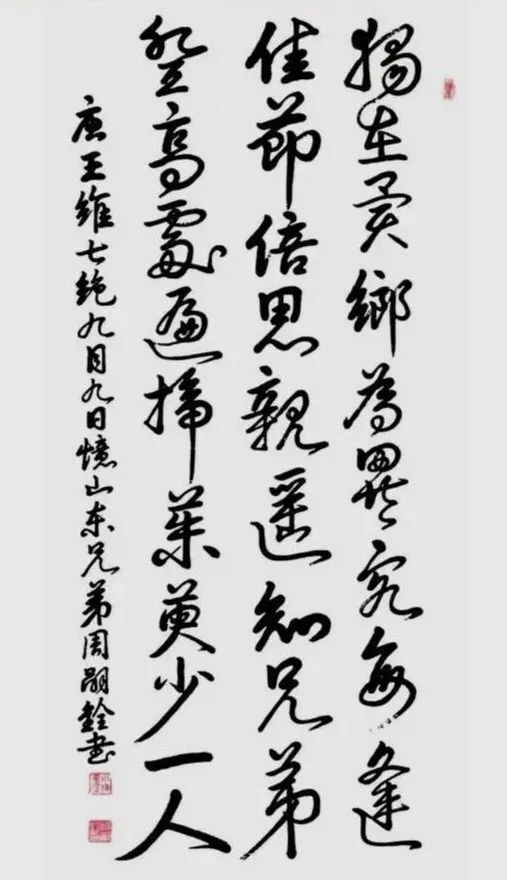 獨在異鄉為異客每逢
佳節倍思親遥知兄弟
登高處遍插茱萸少一人
唐王維七絕九月九日憶山東兄弟周嗣銓書